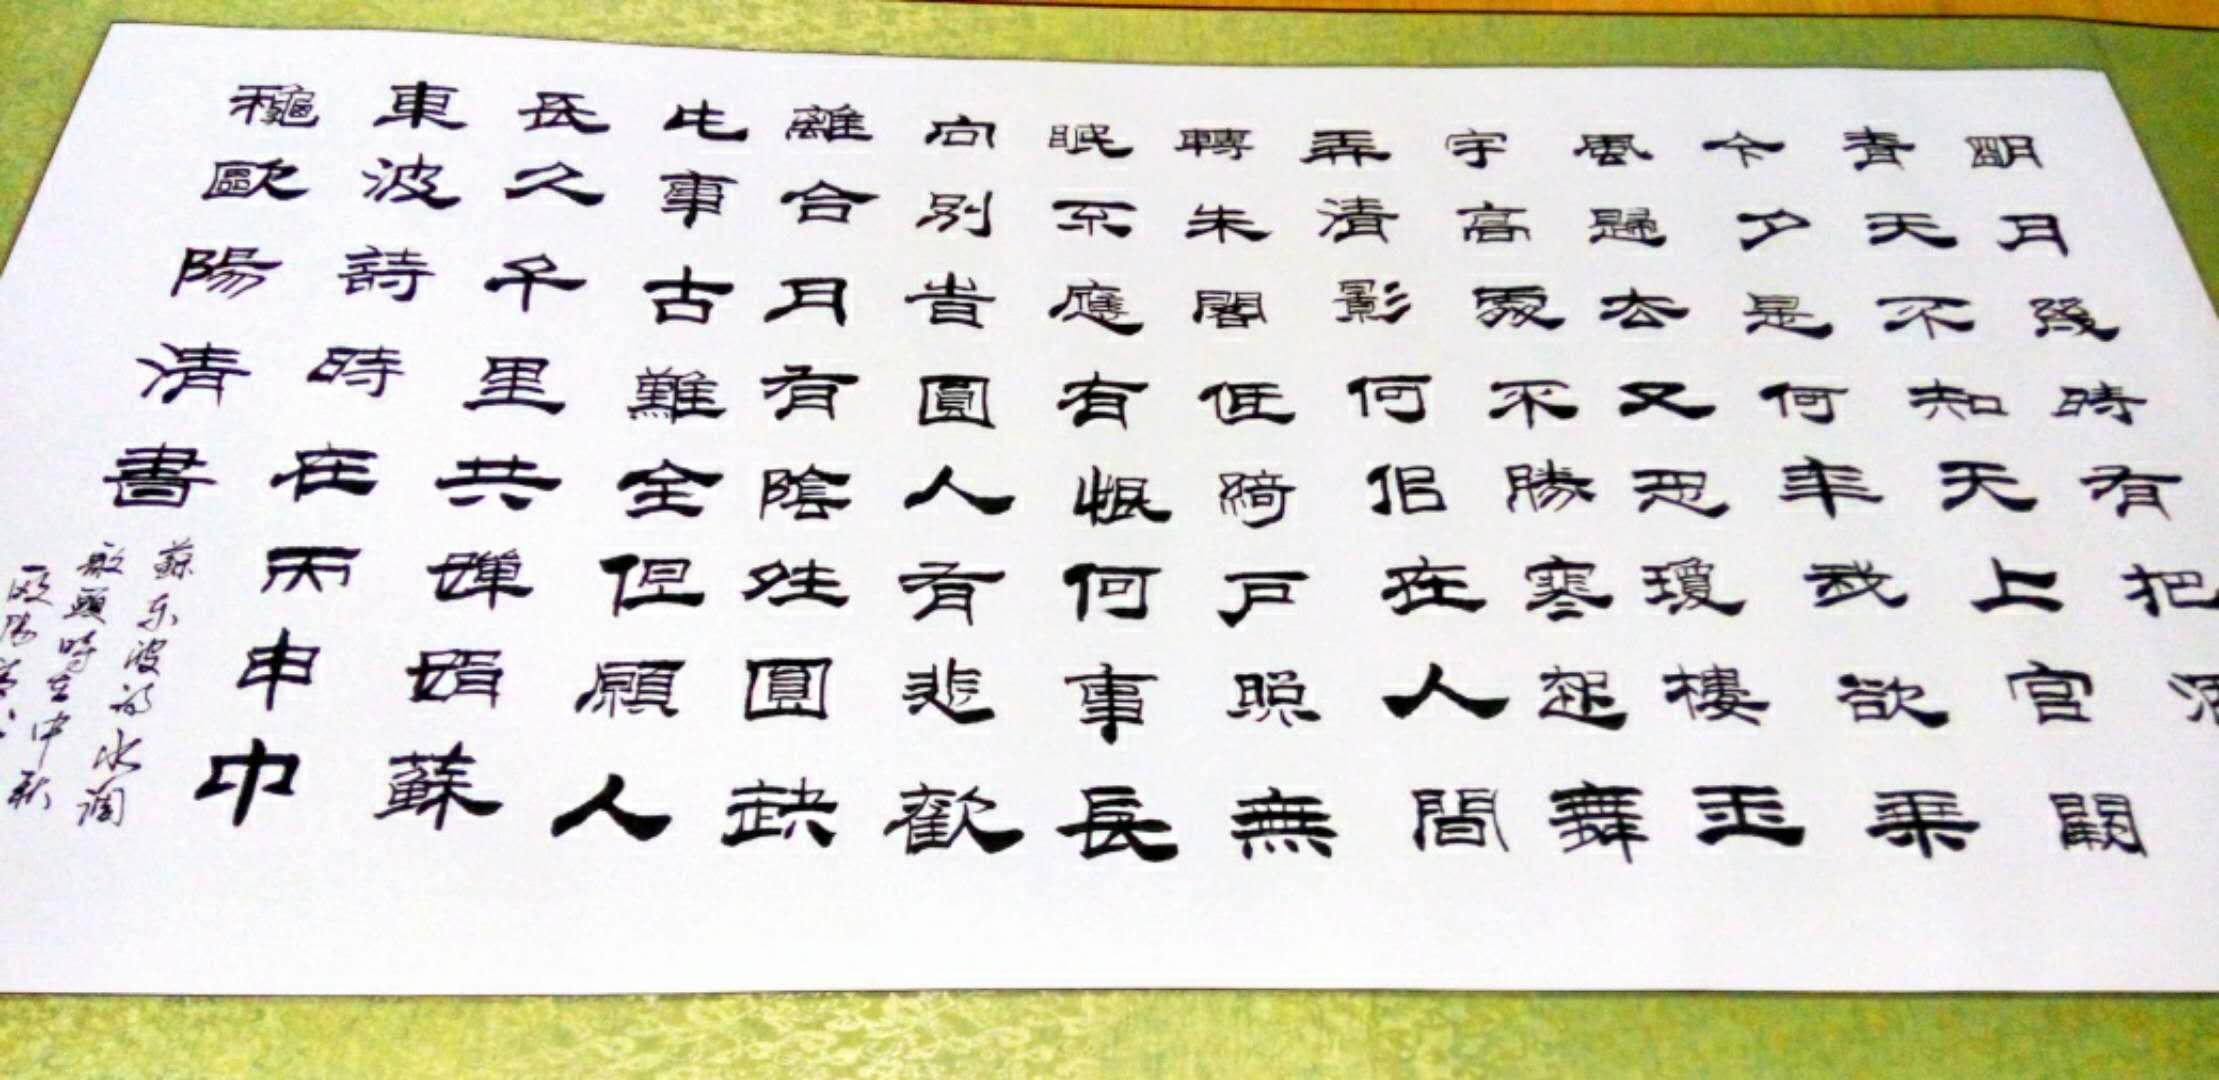 明月幾時有把酒
青天不知天上宫闕
今夕是何年我欲乘
風歸去又恐瓊樓玉
宇高處不勝寒起舞
弄清影何佀在人間
轉朱閣低綺户照無
眠不應有恨何事長
向別旹圓人有悲歡
離合月有陰夝圓缺
此事古難全但願人
長久千里共嬋娟蘇
東波詩時在丙申中
龝歐陽清書
蘇东波词水调
歌頭時在中秋
欧陽清